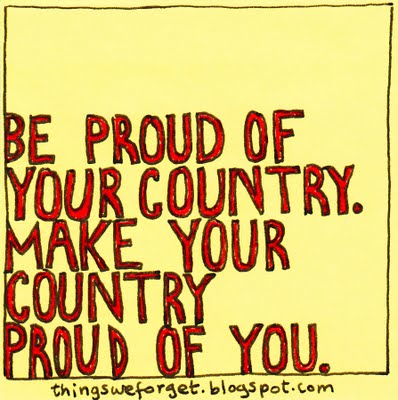 BE PROUD OF
YOUR COUNTRY.
MAKE YOUR
COUNTRY
PROUD OF YOU.
thingsweforget.blogspot.com